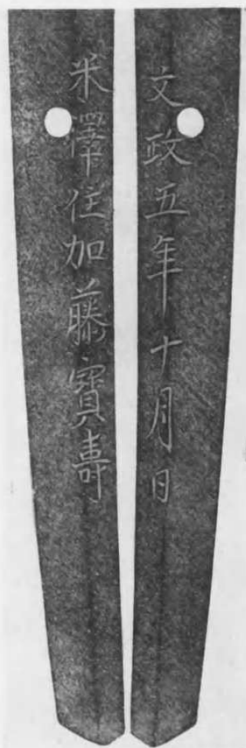 文政五年十月日
米澤住加藤寳壽